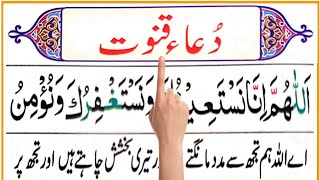 دُعَاءِ قنوت
اَللّٰهُمَّ اِنَّا نَسْتَعِيْنُكَ وَنَسْتَغْفِرُكَ وَنُؤْمِنُ
اے اللہ ہم تجھ سے مدد مانگتے اور تیری بخشش چاہتے ہیں اور تجھ پر